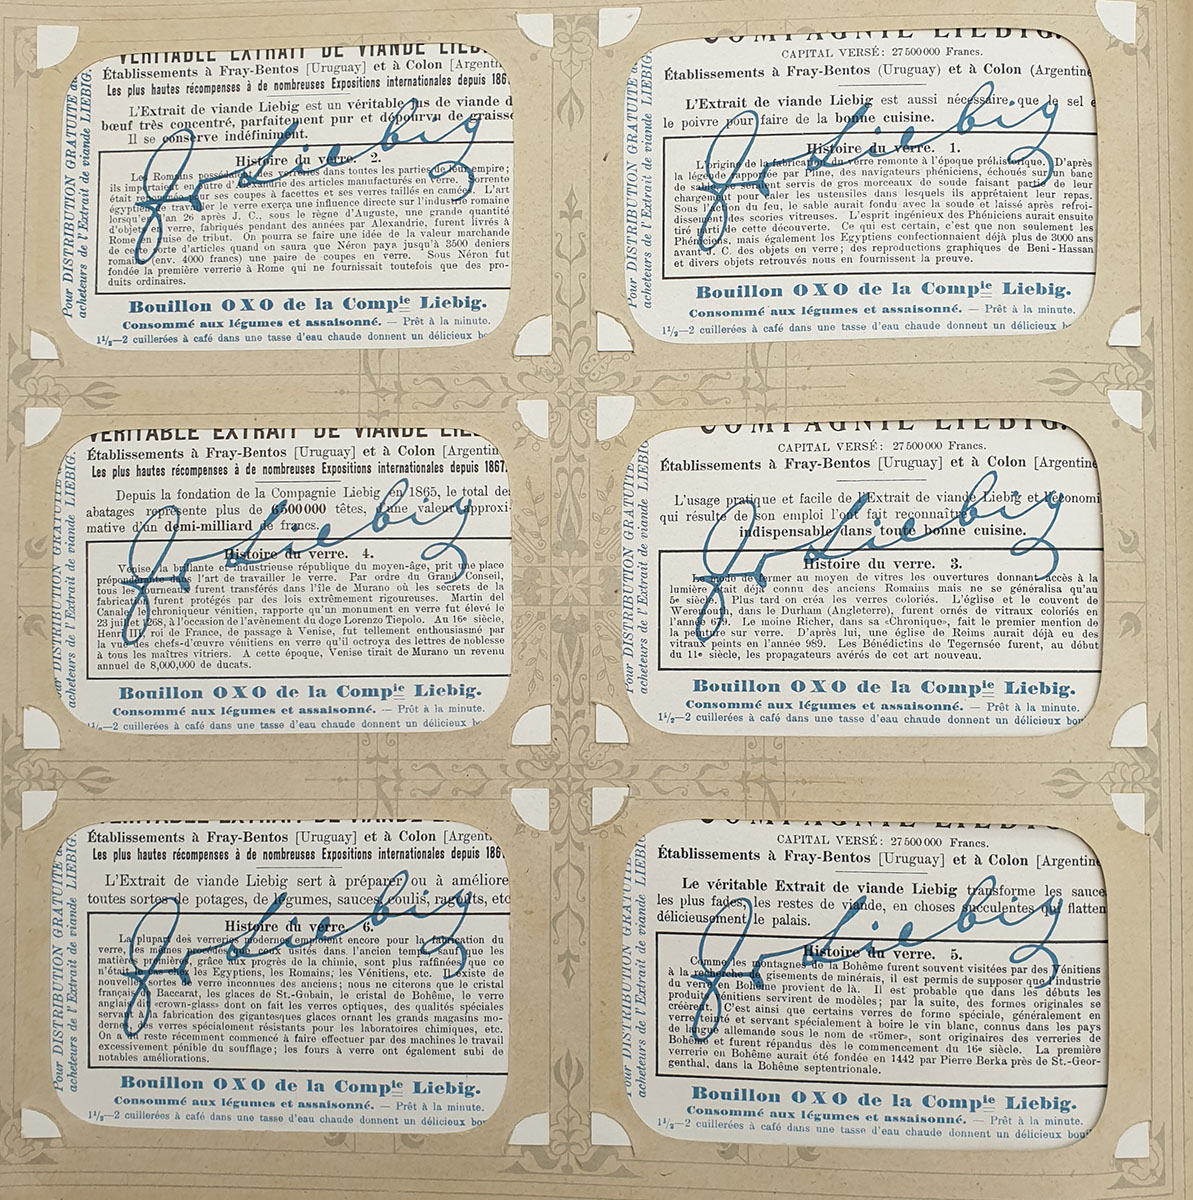 VÉRITABLE EXTRAIT DE VIANDE
Établissements à Fray-Bentos [Uruguay] et à Colon [Argentin
Les plus hautes récompenses à de nombreuses Expositions internationales depuis 186
L'Extrait de viande Liebig est un véritable jus de viande d
bœuf très concentré, parfaitement pur et dépourvu de graisse
Il se conserve indéfiniment.
Histoire du verre. 2.
Les Romains possédaient des verreries dans toutes les parties de leur empire;
ils importaient en outre d'Alexandrie des articles manufacturés en verre. Sorrente
était renommée par ses coupes à facettes et ses verres taillés en camées. L'art
égyptien de travailler le verre exerça une influence directe sur l'industrie romaine
lorsqu'en l'an 26 après J. C., sous le règne d'Auguste, une grande quantité
d'objets en verre, fabriqués pendant des années par Alexandrie, furent livrés à
Rome en guise de tribut. On pourra se faire une idée de la valeur marchande
de cette sorte d'articles quand on saura que Néron paya jusqu'à 3500 deniers
romains (env. 4000 francs) une paire de coupes en verre. Sous Néron fut
fondée la première verrerie à Rome qui ne fournissait toutefois que des pro-
duits ordinaires.
Bouillon OXO de la Compie Liebig.
Consommé aux légumes et assaisonné. — Prêt à la minute.
1½—2 cuillerées à café dans une tasse d'eau chaude donnent un délicieux bo
Pour DISTRIBUTION GRATUITE a
acheteurs de l'Extrait de viande LIEBIG.
Liebig
COMPAGNIE LIEBIG.
CAPITAL VERSÉ: 27500000 Francs.
Établissements à Fray-Bentos (Uruguay) et à Colon (Argentine
L'Extrait de viande Liebig est aussi nécessaire que le sel e
le poivre pour faire de la bonne cuisine.
Histoire du verre. 1.
L'origine de la fabrication du verre remonte à l'époque préhistorique. D'après
la légende rapportée par Pline, des navigateurs phéniciens, échoués sur un banc
de sable se seraient servis de gros morceaux de soude faisant partie de leur
chargement pour caler les ustensiles dans lesquels ils apprêtaient leur repas.
Sous l'action du feu, le sable aurait fondu avec la soude et laissé après refroi-
dissement des scories vitreuses. L'esprit ingénieux des Phéniciens aurait ensuite
tiré parti de cette découverte. Ce qui est certain, c'est que non seulement les
Phéniciens, mais également les Egyptiens confectionnaient déjà plus de 3000 ans
avant J. C. des objets en verre; des reproductions graphiques de Beni-Hassan
et divers objets retrouvés nous en fournissent la preuve.
Bouillon OXO de la Compie Liebig.
Consommé aux légumes et assaisonné. — Prêt à la minute.
1½—2 cuillerées à café dans une tasse d'eau chaude donnent un délicieux b
Pour DISTRIBUTION GRATUITE a
acheteurs de l'Extrait de viande LIEBIG
Liebig
VÉRITABLE EXTRAIT DE VIANDE
Établissements à Fray-Bentos [Uruguay] et à Colon [Argentin
Les plus hautes récompenses à de nombreuses Expositions internationales depuis 1867.
Depuis la fondation de la Compagnie Liebig en 1865, le total des
abatages représente plus de 6500000 têtes, d'une valeur approxi-
mative d'un demi-milliard de francs.
Histoire du verre. 4.
Venise, la brillante et industrieuse république du moyen-âge, prit une place
prépondérante dans l'art de travailler le verre. Par ordre du Grand Conseil,
tous les fourneaux furent transférés dans l'île de Murano où les secrets de la
fabrication furent protégés par des lois extrêmement rigoureuses. Martin del
Canale, chroniqueur vénitien, rapporte qu'un monument en verre fut élevé le
23 juillet 1268, à l'occasion de l'avènement du doge Lorenzo Tiepolo. Au 16e siècle,
Henri III, roi de France, de passage à Venise, fut tellement enthousiasmé par
la vue des chefs-d'œuvre vénitiens en verre qu'il octroya des lettres de noblesse
à tous les maîtres vitriers. A cette époque, Venise tirait de Murano un revenu
annuel de 8,000,000 de ducats.
Bouillon OXO de la Compie Liebig.
Consommé aux légumes et assaisonné. — Prêt à la minute.
1½—2 cuillerées à café dans une tasse d'eau chaude donnent un délicieux bo
Pour DISTRIBUTION GRATUITE
acheteurs de l'Extrait de viande LIEBIG.
Liebig
COMPAGNIE LIEBIG.
CAPITAL VERSÉ: 27500000 Francs.
Établissements à Fray-Bentos [Uruguay] et à Colon [Argentine
L'usage pratique et facile de l'Extrait de viande Liebig et l'économi
qui résulte de son emploi l'ont fait reconnaître
indispensable dans toute bonne cuisine.
Histoire du verre. 3.
Le mode de fermer au moyen de vitres les ouvertures donnant accès à la
lumière était déjà connu des anciens Romains mais ne se généralisa qu'au
5e siècle. Plus tard on créa les verres coloriés. L'église et le couvent de
Weremouth, dans le Durham (Angleterre), furent ornés de vitraux coloriés en
Le moine Richer, dans sa «Chronique», fait le premier mention de
la peinture sur verre. D'après lui, une église de Reims aurait déjà eu des
vitraux peints en l'année 989. Les Bénédictins de Tegernsée furent, au début
du 11e siècle, les propagateurs avérés de cet art nouveau.
Bouillon OXO de la Compie Liebig.
Consommé aux légumes et assaisonné. — Prêt à la minute.
1½—2 cuillerées à café dans une tasse d'eau chaude donnent un délicieux bou
Pour DISTRIBUTION GRATUITE
acheteurs de l'Extrait de viande LIEBIG
Liebig
VÉRITABLE EXTRAIT DE VIANDE
Établissements à Fray-Bentos [Uruguay] et à Colon [Argentin
Les plus hautes récompenses à de nombreuses Expositions internationales depuis 186
L'Extrait de viande Liebig sert à préparer ou à améliore
toutes sortes de potages, de légumes, sauces, coulis, ragoûts, etc
Histoire du verre. 6.
La plupart des verreries modernes emploient encore pour la fabrication du
verre, les mêmes procédés que ceux usités dans l'ancien temps, sauf que les
matières premières, grâce aux progrès de la chimie, sont plus raffinées que ce
n'était le cas chez les Egyptiens, les Romains, les Vénitiens, etc. Il existe de
nouvelles sortes de verre inconnues des anciens; nous ne citerons que le cristal
français de Baccarat, les glaces de St.-Gobain, le cristal de Bohême, le verre
anglais dit «crown-glass» dont on fait les verres optiques, des qualités spéciales
servant à la fabrication des gigantesques glaces ornant les grands magasins mo-
dernes, des verres spécialement résistants pour les laboratoires chimiques, etc.
On a du reste récemment commencé à faire effectuer par des machines le travail
excessivement pénible du soufflage; les fours à verre ont également subi de
notables améliorations.
Bouillon OXO de la Compie Liebig.
Consommé aux légumes et assaisonné. — Prêt à la minute.
1½—2 cuillerées à café dans une tasse d'eau chaude donnent un délicieux bo
Pour DISTRIBUTION GRATUITE a
acheteurs de l'Extrait de viande LIEBIG.
Liebig
COMPAGNIE LIEBIG
CAPITAL VERSÉ: 27500000 Francs.
Établissements à Fray-Bentos [Uruguay] et à Colon [Argentine
Le véritable Extrait de viande Liebig transforme les sauce
les plus fades, les restes de viande, en choses succulentes qui flatten
délicieusement le palais.
Histoire du verre. 5.
Comme les montagnes de la Bohême furent souvent visitées par des Vénitiens
à la recherche de gisements de minérais, il est permis de supposer que l'industrie
du verre en Bohême provient de là. Il est probable que dans les débuts les
produits vénitiens servirent de modèles; par la suite, des formes originales se
créèrent. C'est ainsi que certains verres de forme spéciale, généralement en
verre teinté et servant spécialement à boire le vin blanc, connus dans les pays
de langue allemande sous le nom de «römer», sont originaires des verreries de
Bohême et furent répandus dès le commencement du 16e siècle. La première
verrerie en Bohême aurait été fondée en 1442 par Pierre Berka près de St.-Geor-
genthal, dans la Bohême septentrionale.
Bouillon OXO de la Compie Liebig.
Consommé aux légumes et assaisonné. — Prêt à la minute.
1½—2 cuillerées à café dans une tasse d'eau chaude donnent un délicieux bou
Pour DISTRIBUTION GRATUITE
acheteurs de l'Extrait de viande LIEBIG
Liebig